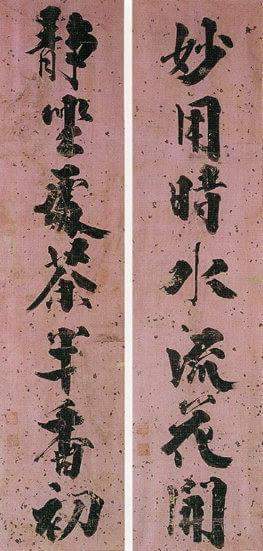 妙用時水流花開
靜坐處茶半香初